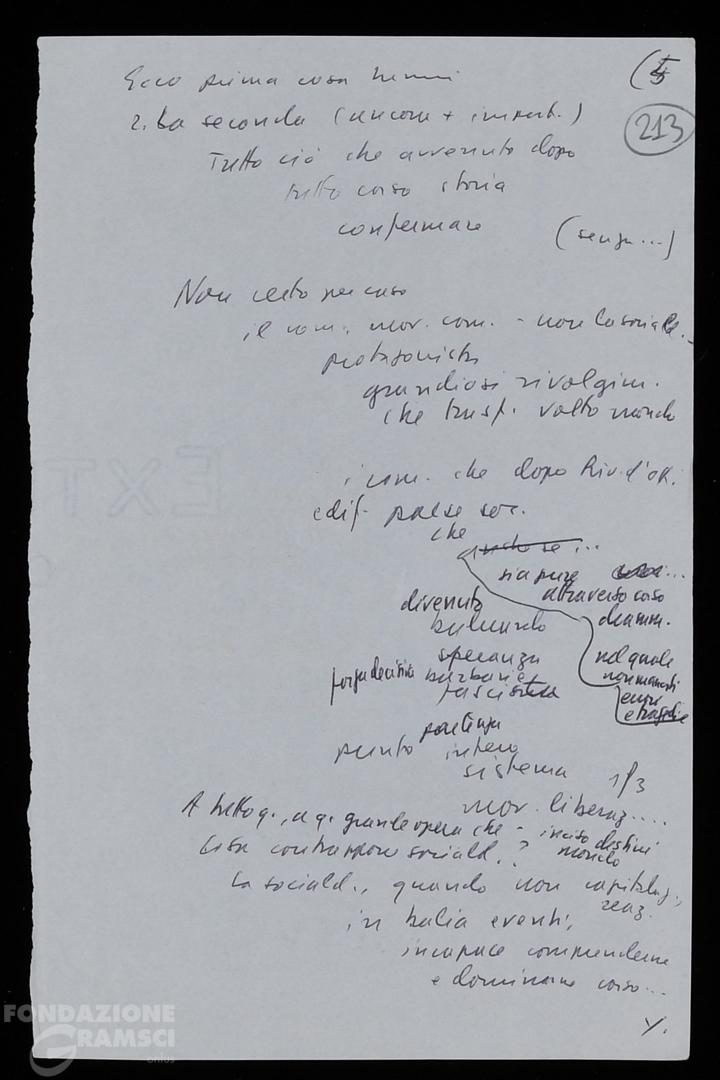 (5
213
Ecco prima cosa Nenni
2. La seconda (ancora + import.)
Tutto ciò che avvenuto dopo
tutto corso storia
confermare (senza...)
Non certo per caso
il com. mov. com. - non la sociald.
protagonista
grandiosi rivolgim.
che trasf. volto mondo
i com. che dopo Riv. d'Ott.
edif. paese soc.
che
anche se...
sia pure
attraverso corso
dramm.
nel quale
non mancati
errori
e tragedie
divenuto
baluardo
speranza
forza decisiva barbarie
fascista
punto partenza
intero
sistema 1/3
mov. liberaz....
A tutto q., a q. grande opera che - inciso destini
mondo
Cosa contrappone sociald.?
La sociald., quando non capitolaz.,
reaz.
in balia eventi,
incapace comprendere
e dominare corso...
EXT
FONDAZIONE
GRAMSCI
onlus